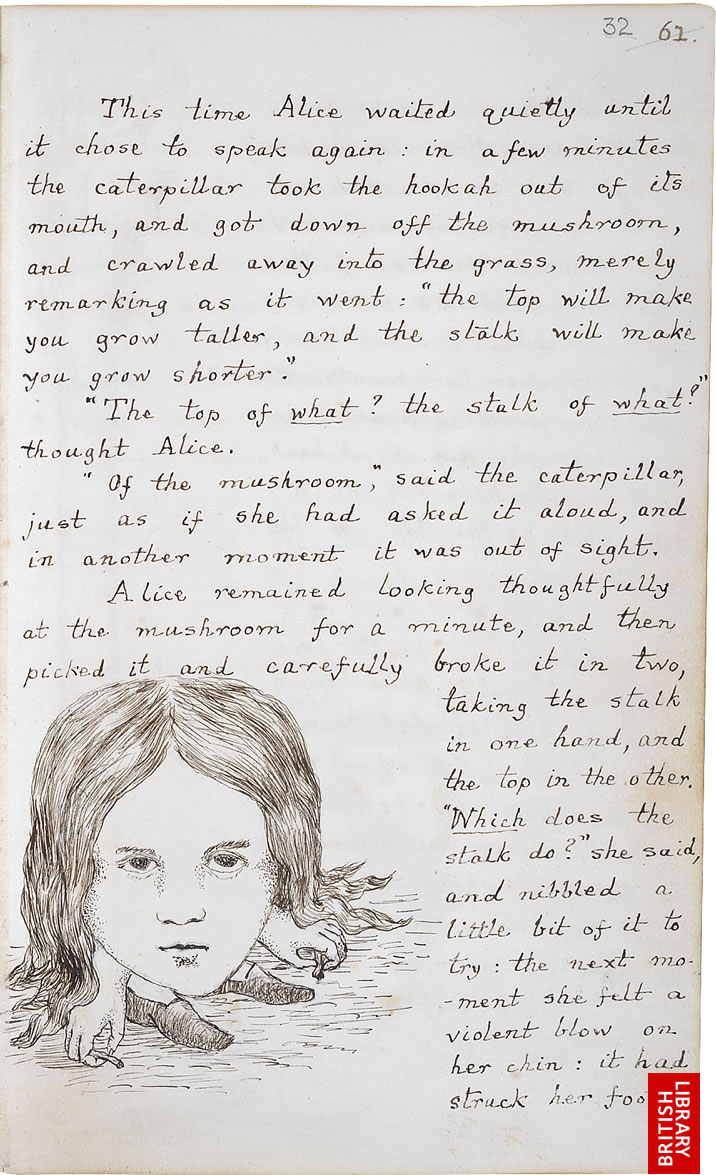 32 61.
This time Alice waited quietly until
it chose to speak again : in a few minutes
the caterpillar took the hookah out of its
mouth, and got down off the mushroom,
and crawled away into the grass, merely
remarking as it went : "the top will make
you grow taller, and the stalk will make
you grow shorter."
"The top of what? the stalk of what?"
thought Alice.
"Of the mushroom," said the caterpillar,
just as if she had asked it aloud, and
in another moment it was out of sight.
Alice remained looking thoughtfully
at the mushroom for a minute, and then
picked it and carefully broke it in two,
taking the stalk
in one hand, and
the top in the other.
"Which does the
stalk do?" she said,
and nibbled a
little bit of it to
try : the next mo-
-ment she felt a
violent blow on
her chin : it had
struck her foo
BRITISH
LIBRARY